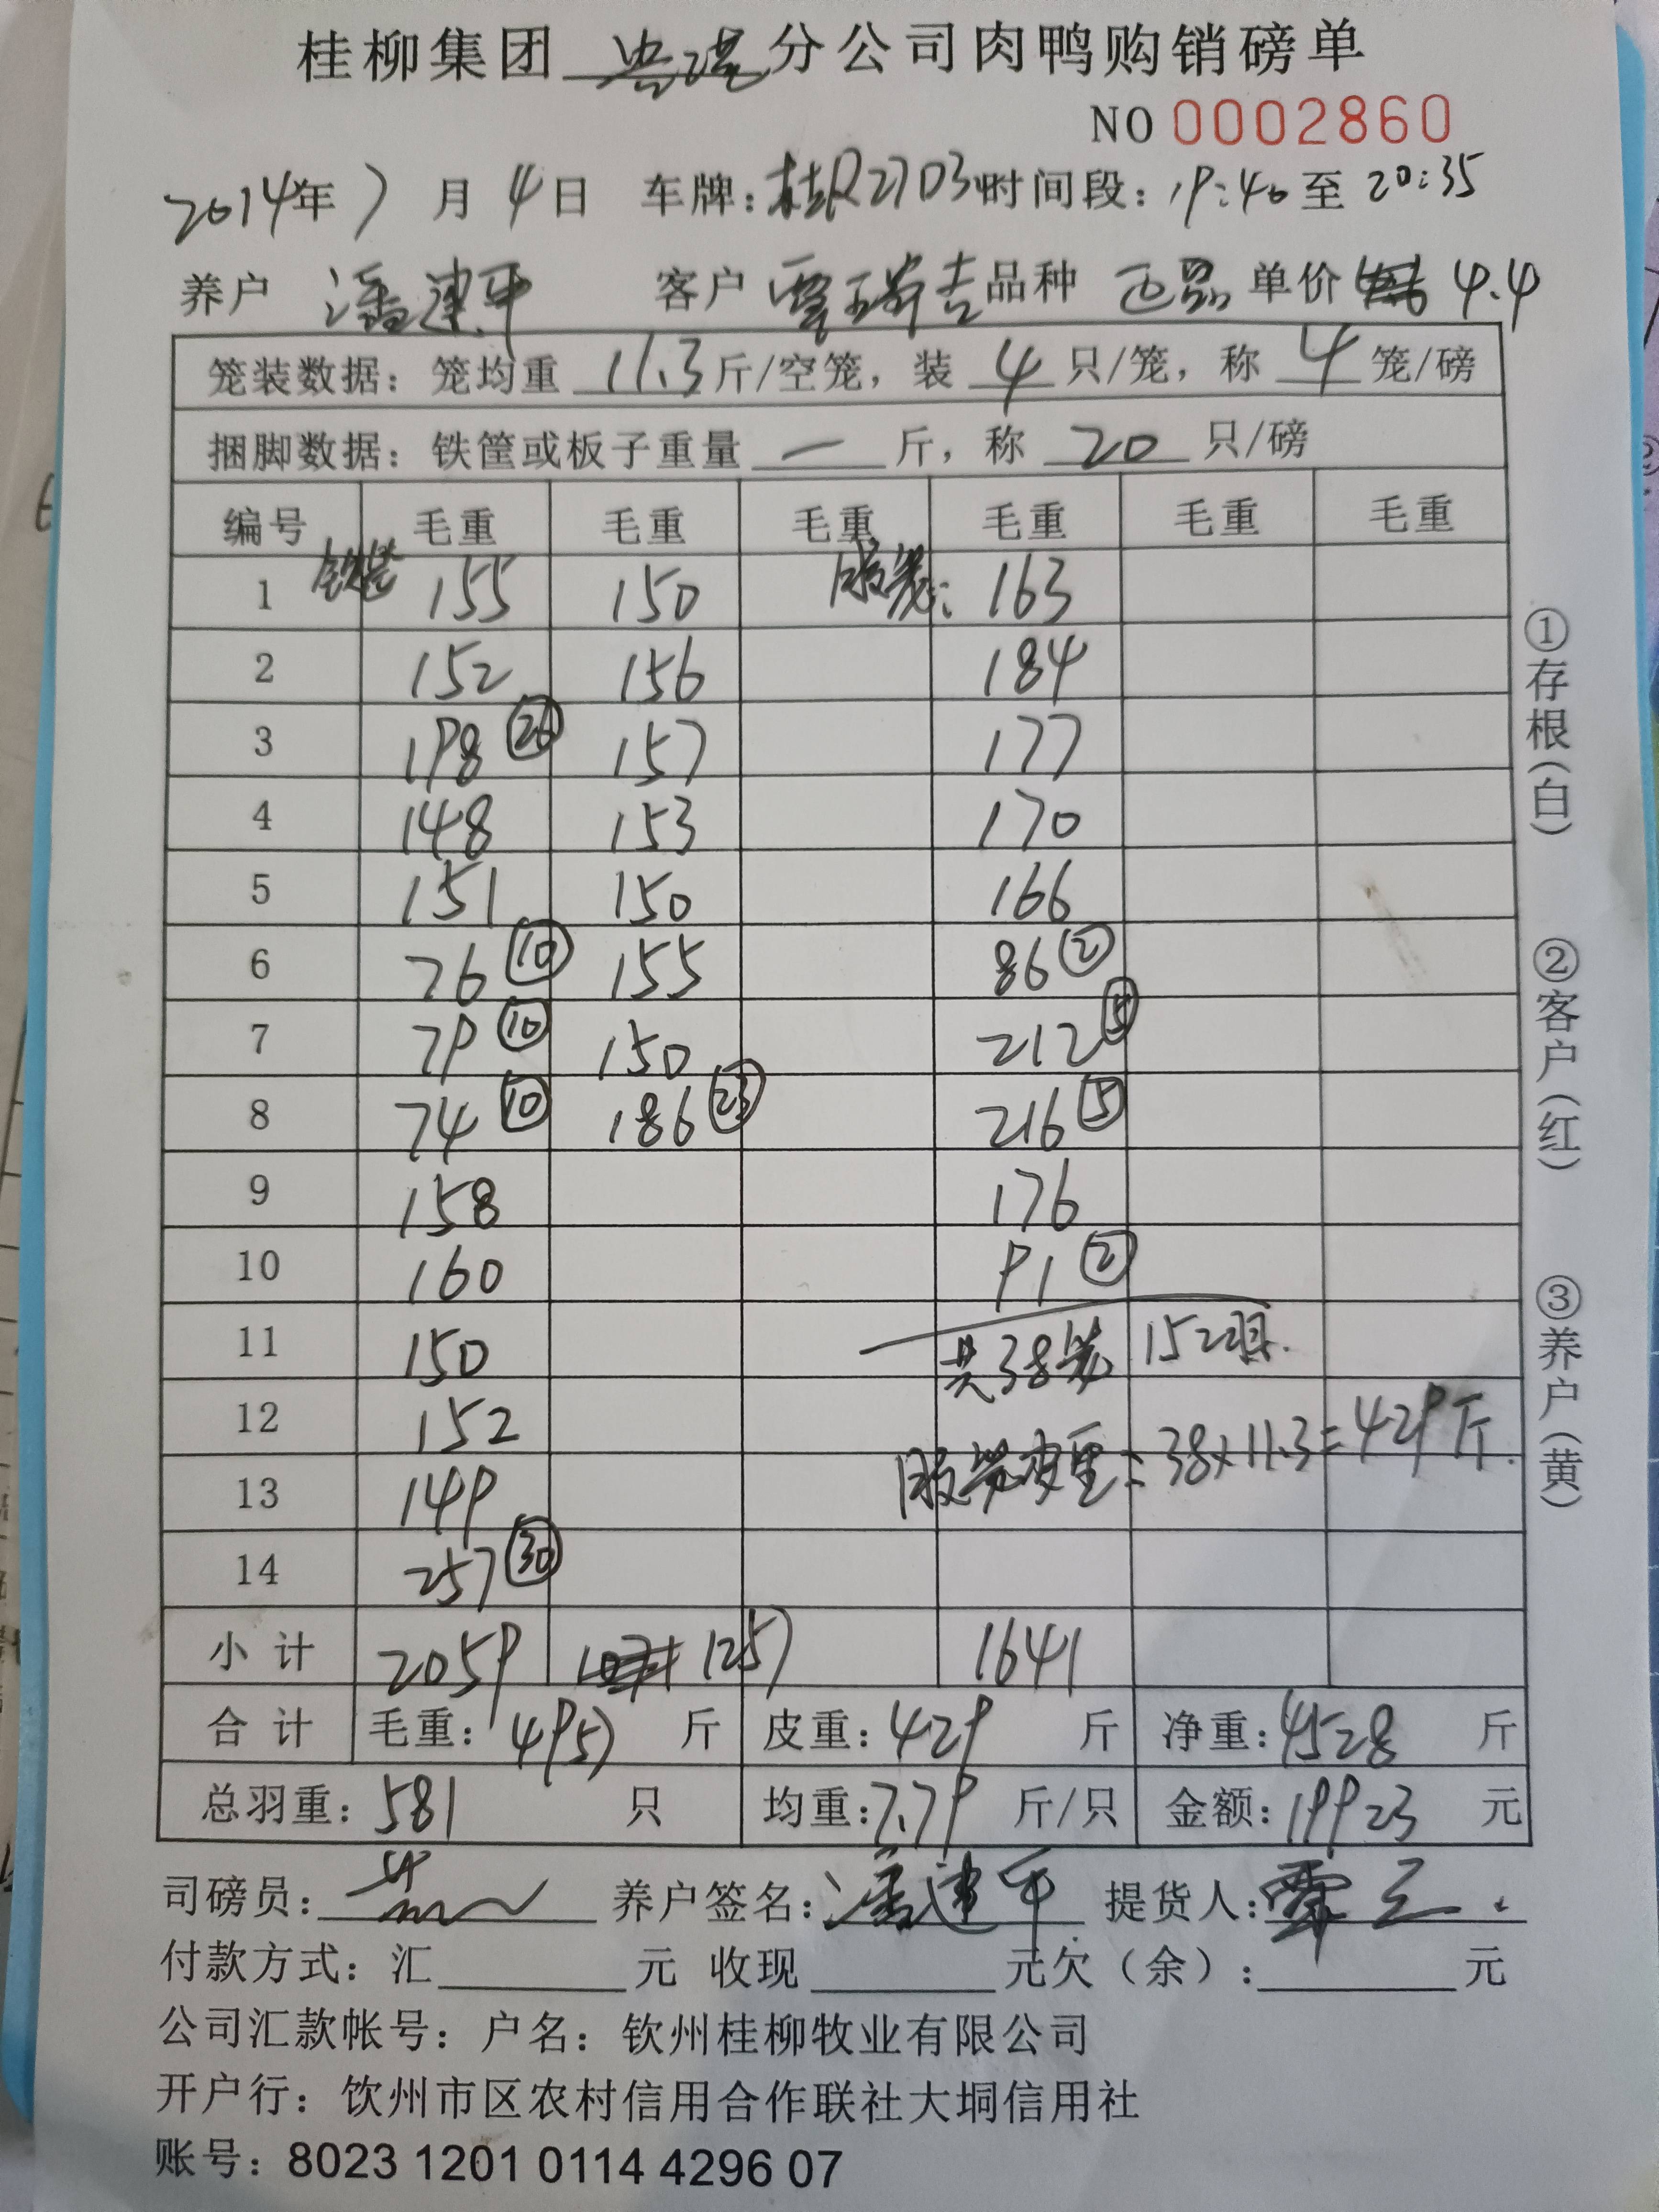 桂柳集团 分公司肉鸭购销磅单
NO 0002860
2014年 7 月 4 日 车牌：桂R2703 时间段：19:40 至 20:35
养户 潘建平 客户 覃瑞吉 品种 单价 4.4
笼装数据：笼均重 11.3 斤/空笼，装 4 只/笼，称 4 笼/磅
捆脚数据：铁筐或板子重量 一 斤，称 20 只/磅
编号 毛重 毛重 毛重 毛重 毛重 毛重
1 155 150 胶笼: 163
2 152 156 184
3 198 ㉖ 157 177
4 148 153 170
5 151 150 166
6 76 ⑩ 155 86 ②
7 79 ⑩ 150 212 ⑤
8 74 ⑩ 186 ㉓ 216 ⑤
9 158 176
10 160 91 ②
11 150 共38笼 152只.
12 152
胶笼皮重=38×11.3=429斤.
13 149
14 257 ㉚
小计 2059 1257 1641
合计 毛重：4957 斤 皮重：429 斤 净重：4528 斤
总羽重：581 只 均重：7.79 斤/只 金额：19923 元
司磅员： 养户签名：潘建平 提货人：覃
付款方式：汇 元 收现 元欠（余）： 元
公司汇款帐号：户名：钦州桂柳牧业有限公司
开户行：钦州市区农村信用合作联社大垌信用社
账号：8023 1201 0114 4296 07
①存根（白）
②客户（红）
③养户（黄）